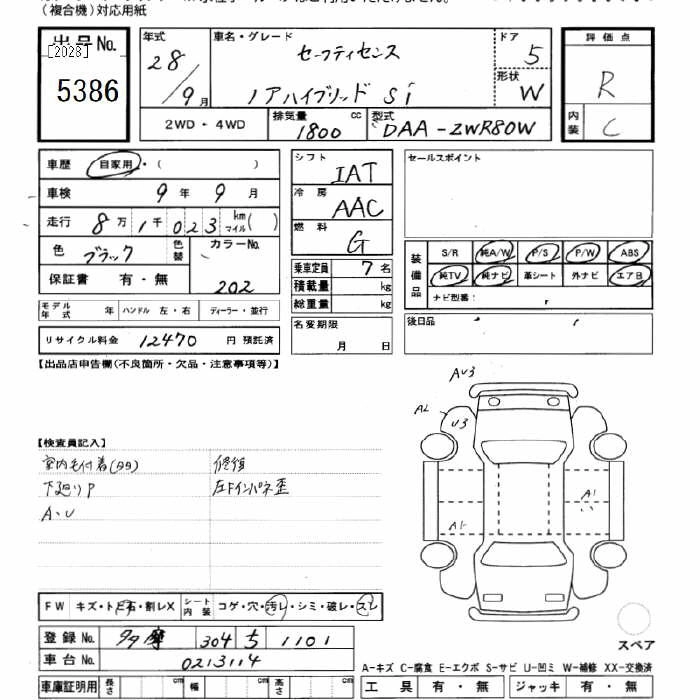 (複合機)対応用紙
出品No. [2028] 5386
年式 28/9月
車名・グレード セーフティセンス ノアハイブリッド Si
ドア 5
形状 W
評価点 R
内装 C
2WD・4WD
排気量 1800 cc
型式 DAA-ZWR80W
車歴 自家用・( )
車検 9年 9月
走行 8万1千023 km マイル( )
色 ブラック 色替
カラーNo. 202
保証書 有・無
シフト IAT
冷房 AAC
燃料 G
乗車定員 7名
積載量 kg
総重量 kg
セールスポイント
装備品 S/R 純A/W P/S P/W ABS
純TV 純ナビ 革シート 外ナビ エアB
ナビ型番:
モデル年式 年 ハンドル 左・右 ディーラー・並行
名変期限 月 日
後日品
リサイクル料金 12470 円 預託済
【出品店申告欄(不良箇所・欠品・注意事項等)】
AU3
A2
U3
A1
A1
【検査員記入】
室内毛付着(タタ) 修復
下廻りP 左Fインパネ歪
A、U
FW キズ・トビ石・割レX シート内装 コゲ・穴・汚レ・シミ・破レ・スレ
登録No. 多摩 304 ち 1101
車台No. 0213114
スペア
A-キズ C-腐食 E-エクボ S-サビ U-凹ミ W-補修 XX-交換済
車庫証明用 長さ cm 幅 cm 高さ cm
工具 有・無 ジャッキ 有・無